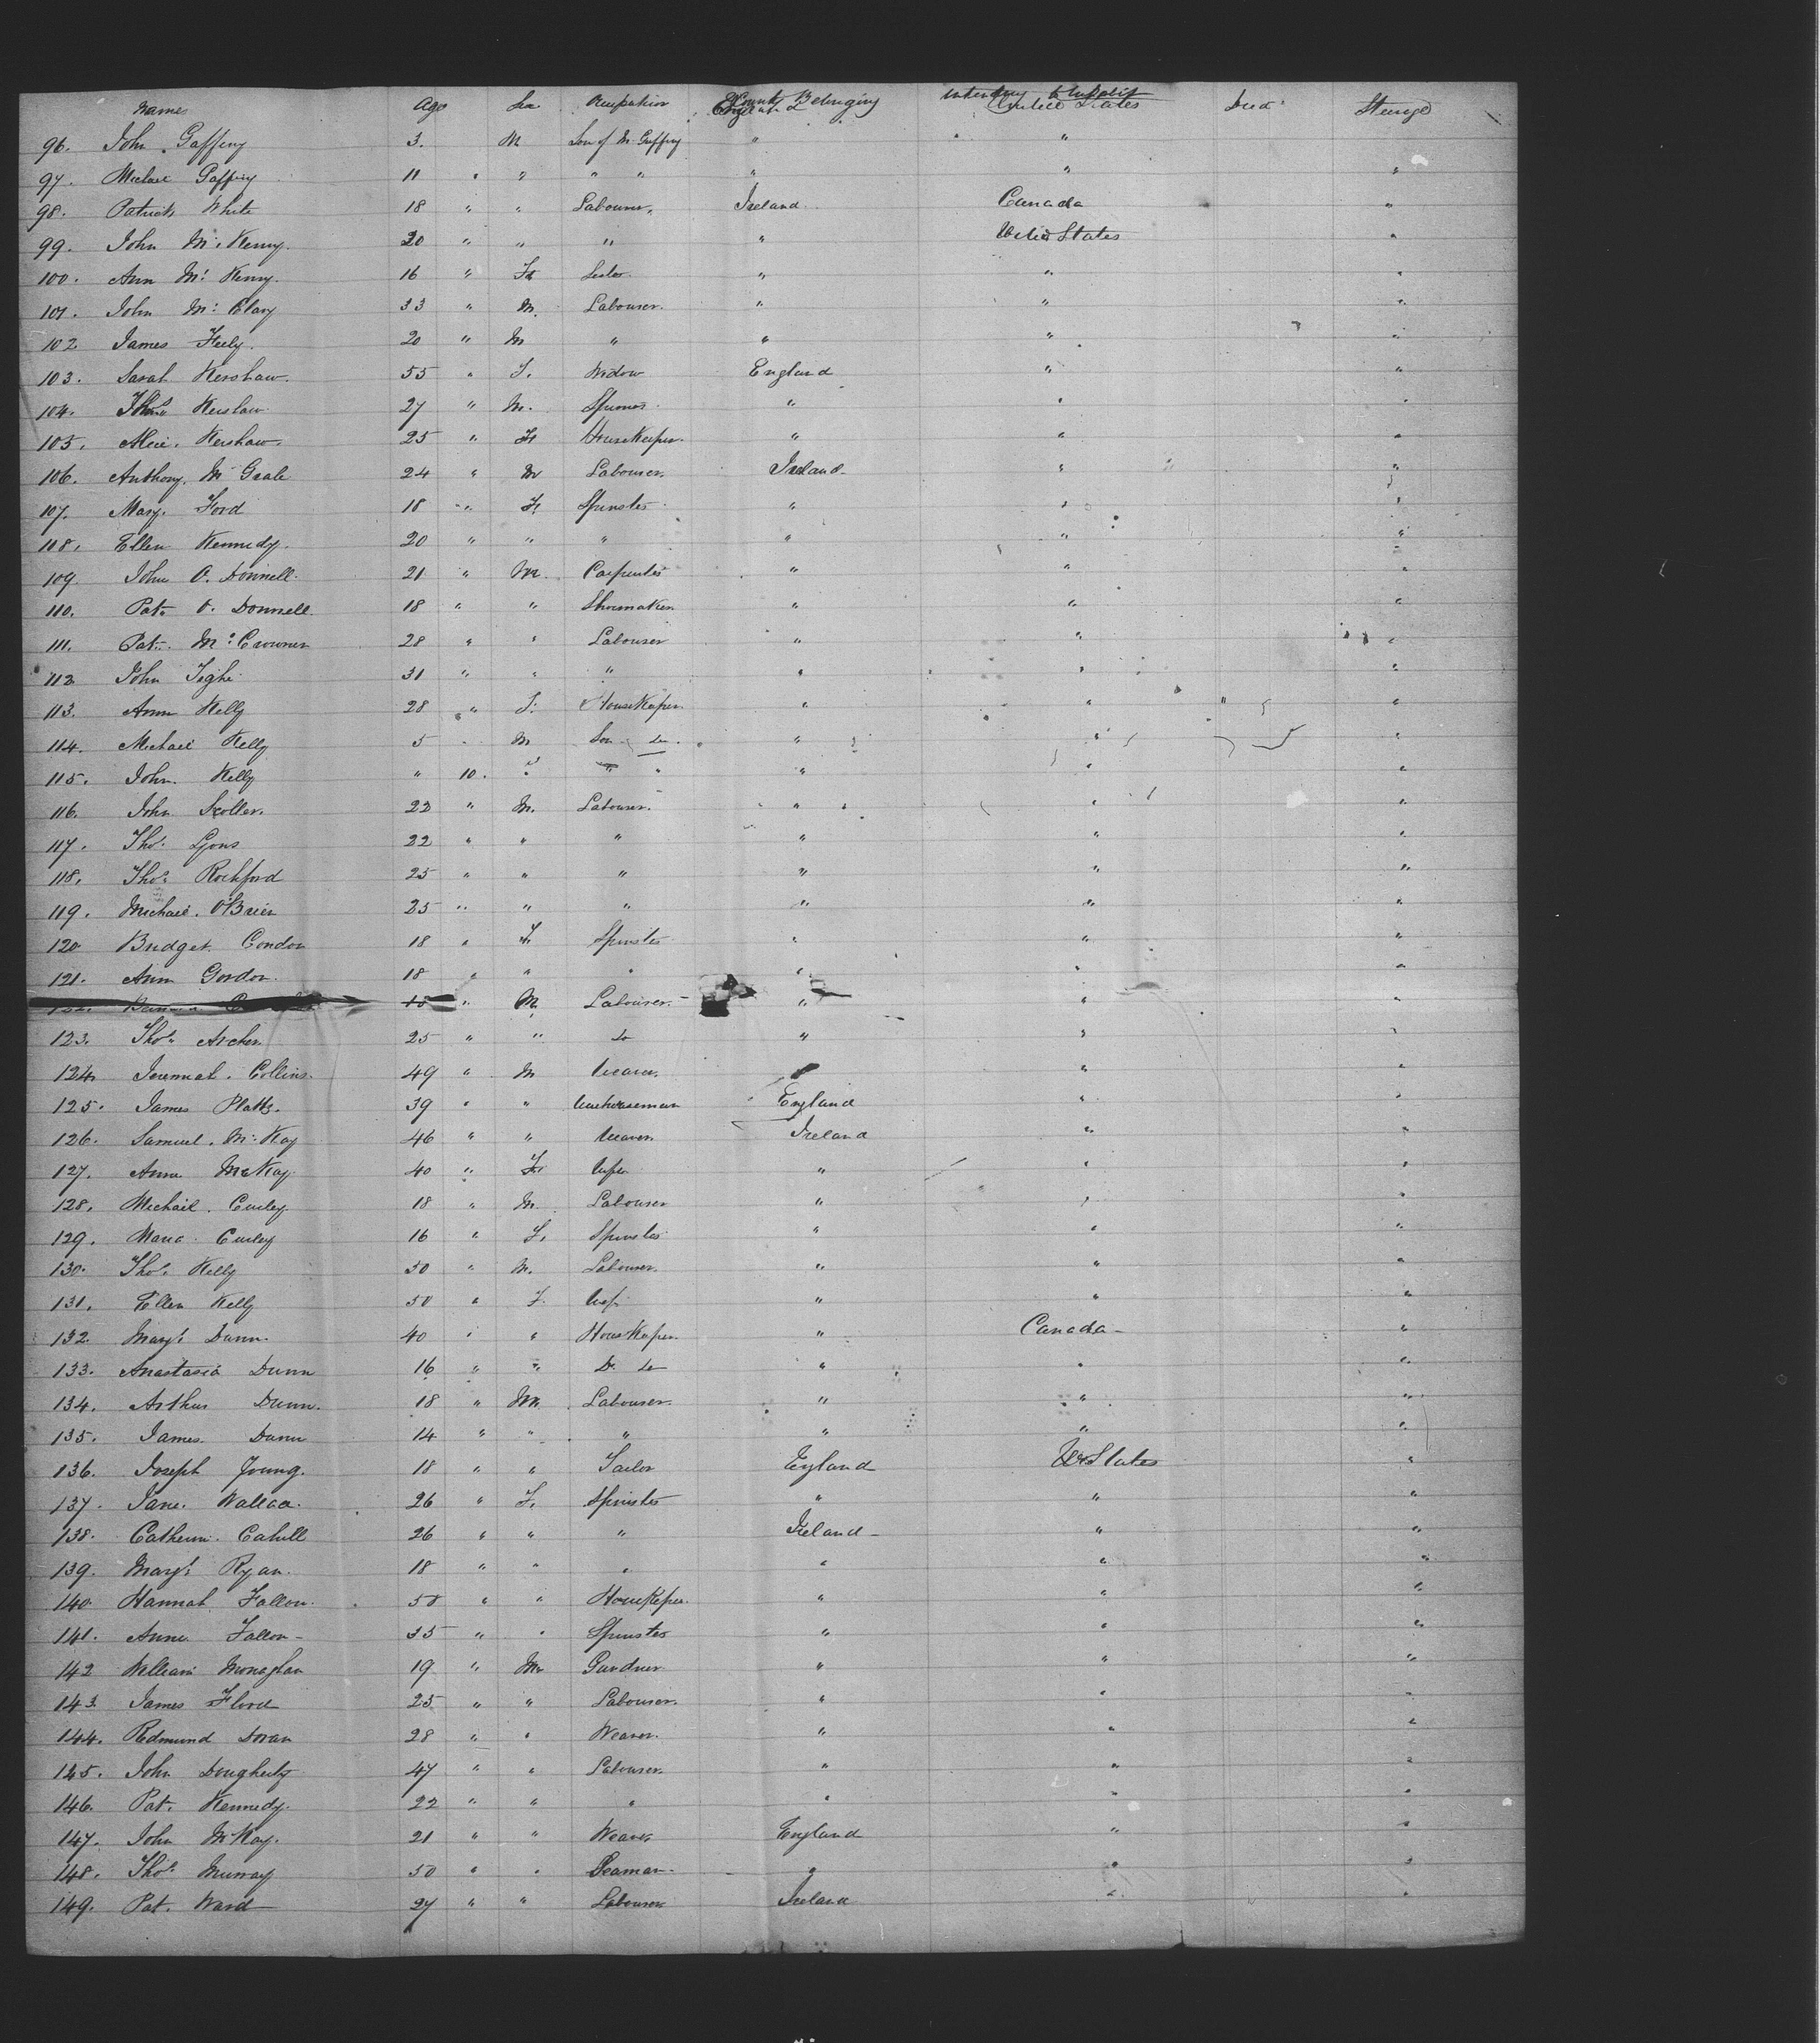 Names Age Sex Occupation County Belonging Intending to Inhabit Died Steerage
England United States
96. John Gaffeny 3. M Son of M. Gaffeny " "
97. Michael Gaffeny 11 " " " " " " "
98. Patrick White 18 " " Labourer Ireland Canada "
99. John Mc Kenny. 20 " " " " United States "
100. Ann Mc Kenny. 16 " F Sister " " "
101. John Mc Clary 33 " M. Labourer. " " "
102 James Feely. 20 " M " " " "
103. Sarah Kershaw. 55 " F. Widow England " "
104. Thos Kershaw. 27 " M. " " "
105. Alice. Kershaw. 25 " F Housekeeper. " " "
106. Anthony. Mc Grale 24 " M Labourer. Ireland " "
107. Mary. Ford 18 " F. Spinster " " "
108. Ellen Kennedy. 20 " " " " " "
109. John O. Donnell. 21 " M. Carpenter " " "
110. Pat. O. Donnell. 18 " " Shoemaker " " "
111. Pat. Mc Crowner 28 " " Labourer " " "
112. John Tighe 31 " " " " " "
113. Ann Kelly 28 " F. Housekeeper. " " " "
114. Michael Kelly 5 " M Son do. " " "
115. John. Kelly " 10. " " " " " "
116. John Scoller. 22 " M. Labourer. " " "
117. Thos. Lyons 22 " " " " " "
118. Thos. Rochford 25 " " " " " "
119. Michael. O'Brien 25 " " " " " "
120. Bridget. Condon 18 " F. Spinster " " "
121. Ann Gordon. 18 " " " " " "
" M Labourer. " " "
123. Thos. Archer. 25 " " do " " "
124. Jeremiah. Collins. 49 " M Weaver. " "
125. James Platts. 39 " " Warehouseman England " "
126. Samuel. Mc Kay 46 " " Weaver. Ireland " "
127. Anne McKay 40 " F. Wife " " "
128. Michael. Curley 18 " M. Labourer " " "
129. Maria. Curley 16 " F. Spinster " " "
130. Thos. Kelly 50 " M. Labourer. " " "
131. Ellen Kelly 50 " F. Wife " " "
132. Margt. Dunn. 40 " " Housekeeper. " Canada "
133. Anastasia Dunn 16 " " D. do " " "
134. Arthur Dunn. 18 " M. Labourer. " " "
135. James. Dunn 14 " " " " " "
136. Joseph Young. 18 " " Tailor England U. States "
137. Jane. Wallace. 26 " F. Spinster " " "
138. Catherin. Cahill 26 " " " Ireland " "
139. Margt. Ryan. 18 " " " " " "
140. Hannah. Fallon. 50 " " Housekeeper. " " "
141. Anne. Fallon 35 " " Spinster " " "
142 William Monaghan 19 " M. Gardner " " "
143. James Flood 25 " " Labourer. " " "
144. Redmund Doran 28 " " Weaver. " " "
145. John Dougherty 47 " " Labourer " " "
146. Pat. Kennedy. 22 " " " " " "
147. John McKay. 21 " " Weaver England " "
148. Thos. Murray 50 " " Seaman. " " "
149. Pat. Ward 27 " " Labourer Ireland " "